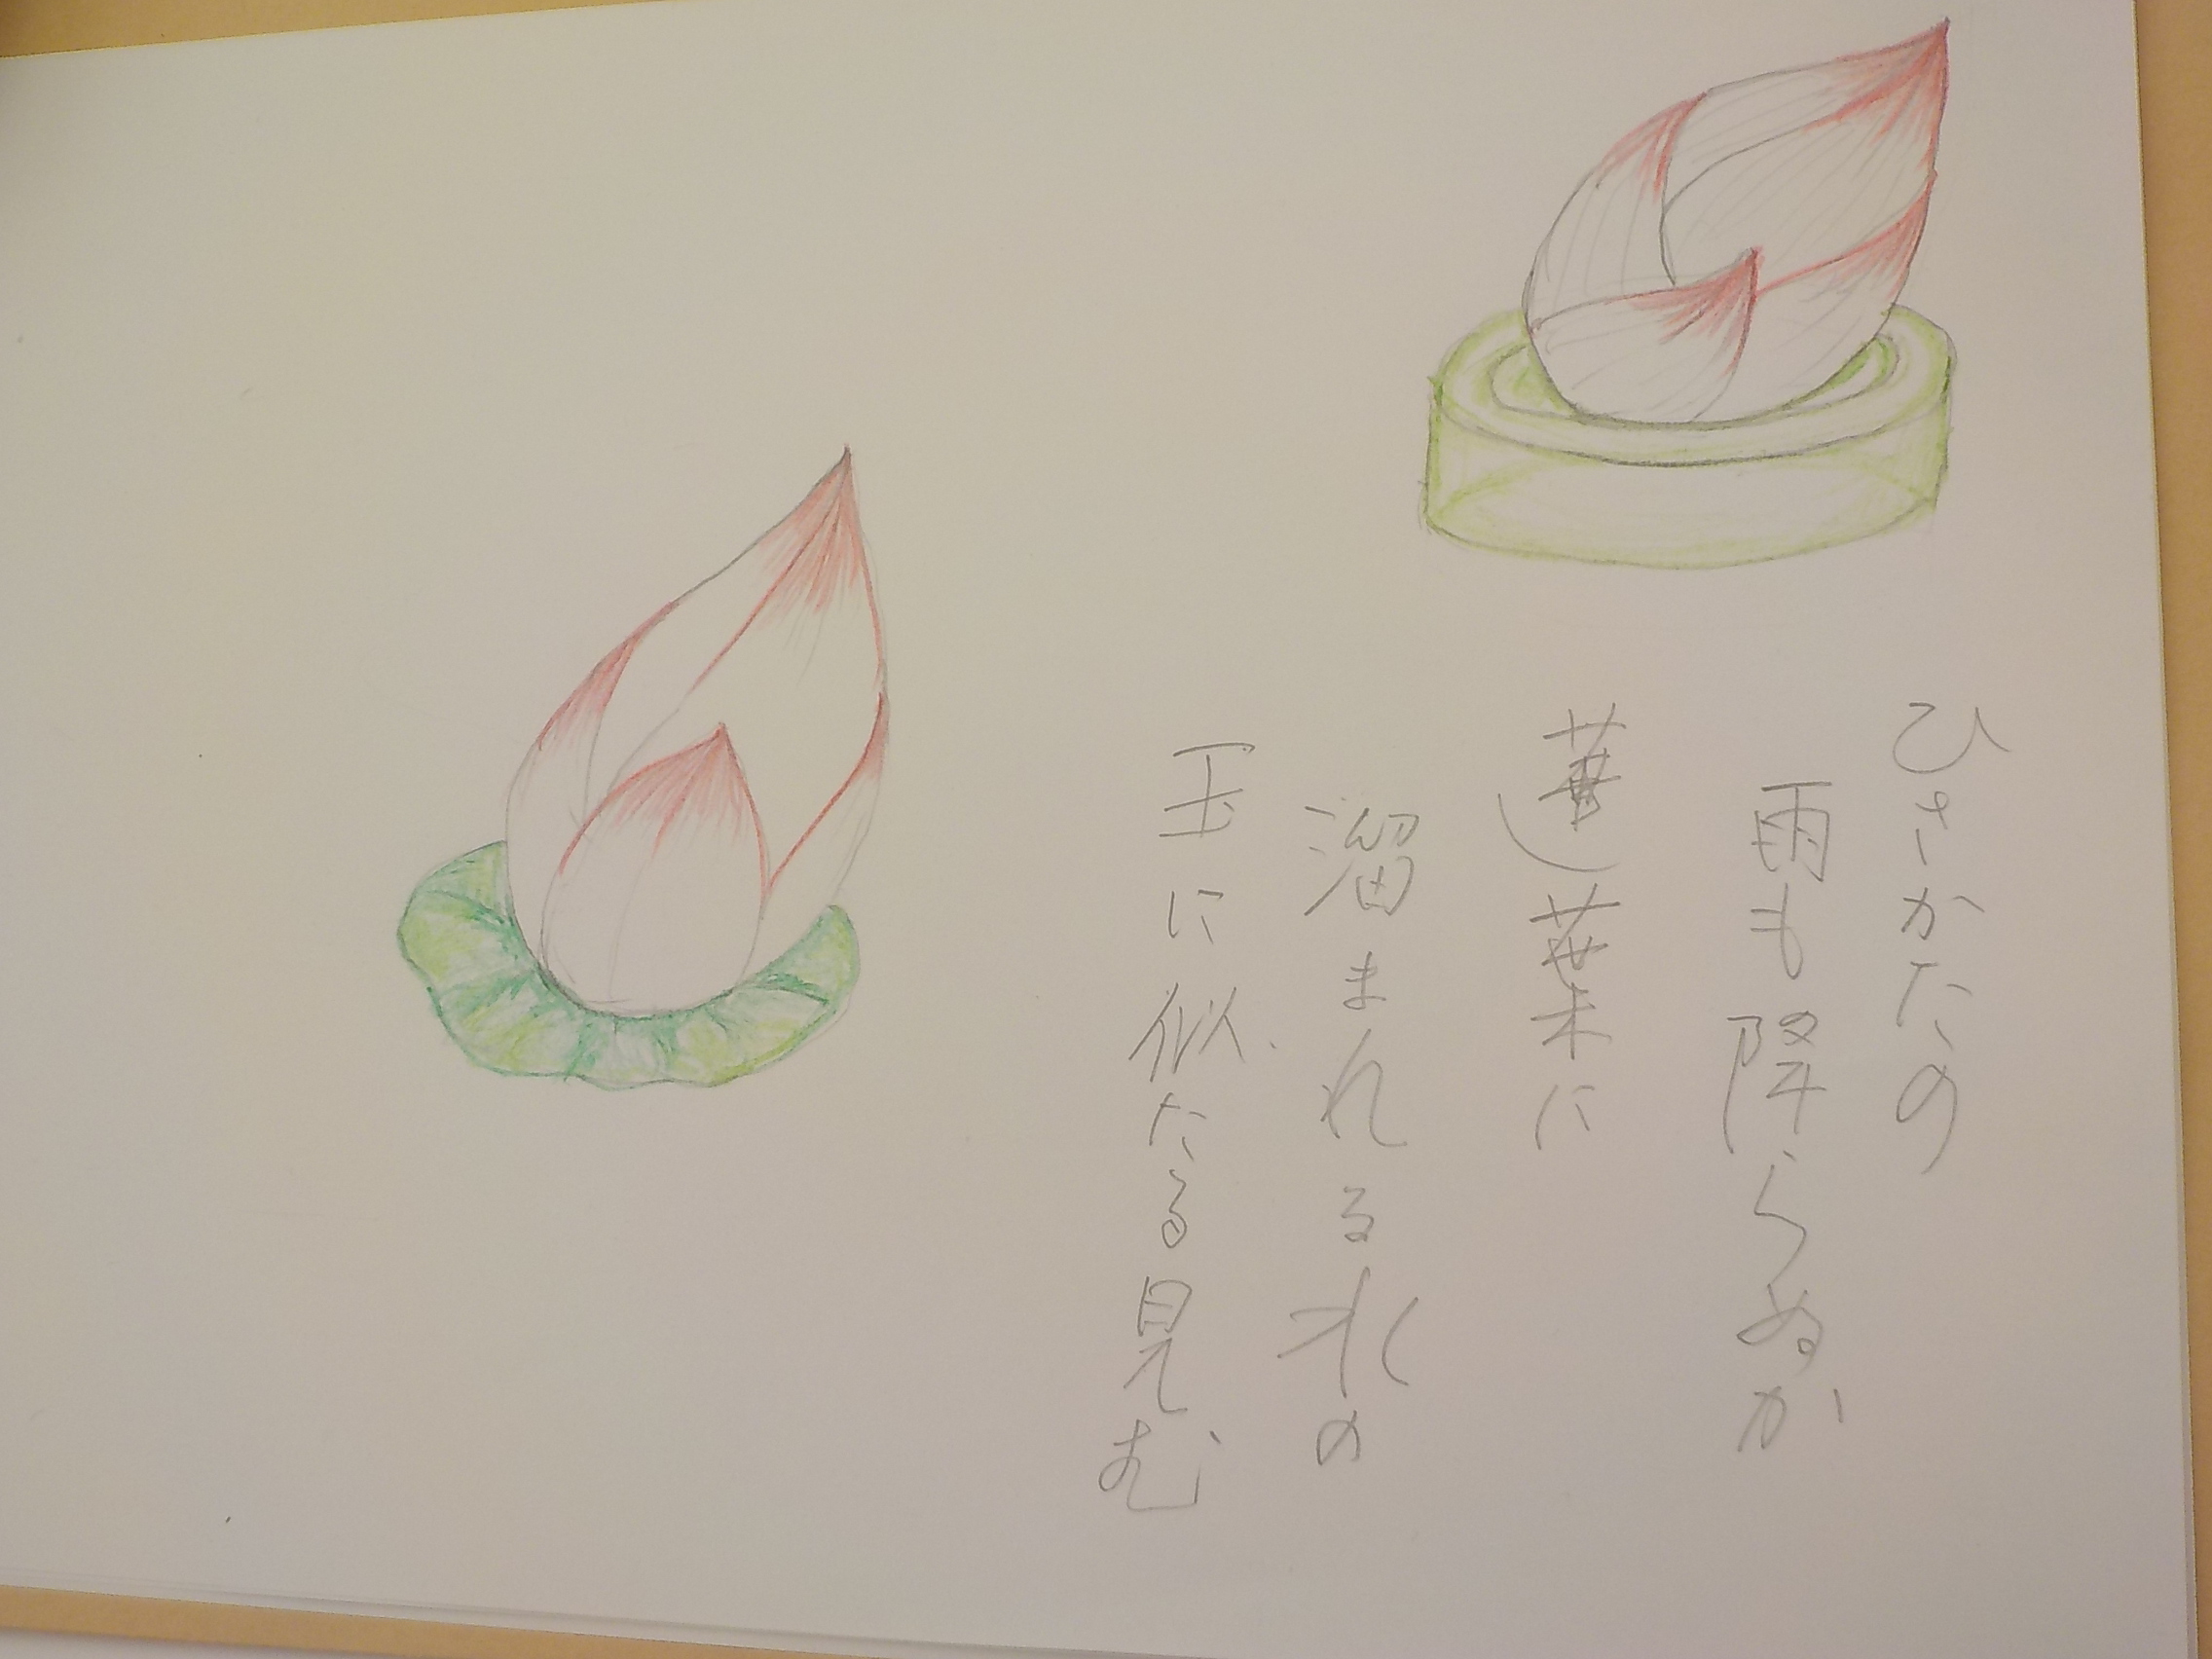 ひさかたの
雨も降らぬか
蓮葉に
溜まれる水の
玉に似たる見む